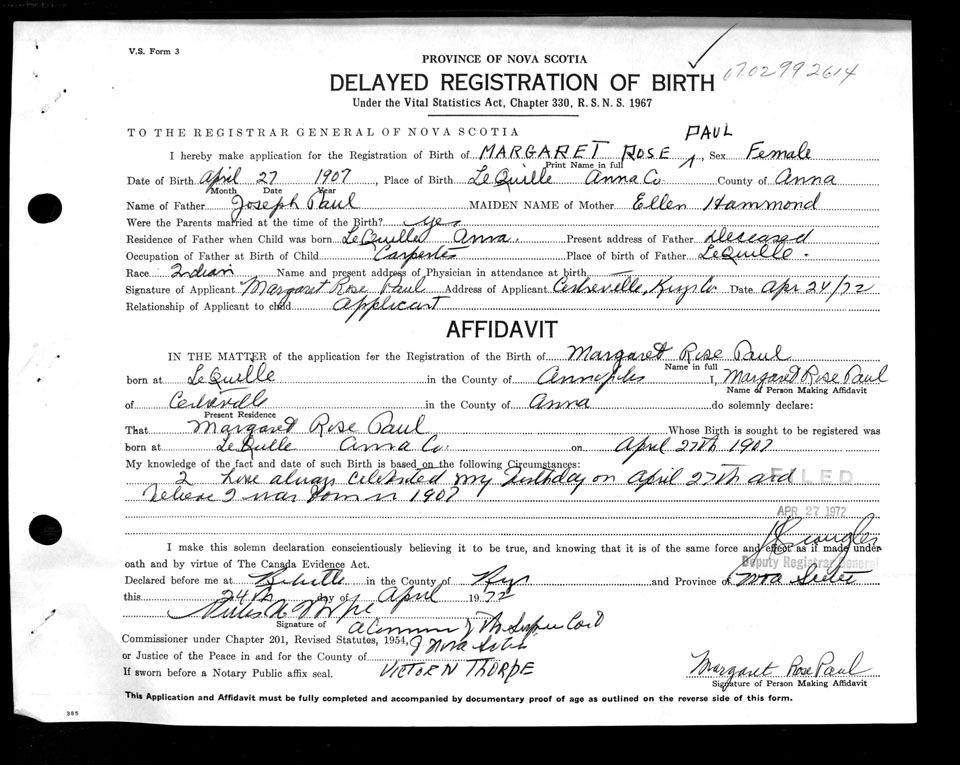 V.S. Form 3
PROVINCE OF NOVA SCOTIA
DELAYED REGISTRATION OF BIRTH 07 02 992614
Under the Vital Statistics Act, Chapter 330, R. S. N. S. 1967
TO THE REGISTRAR GENERAL OF NOVA SCOTIA
PAUL
I hereby make application for the Registration of Birth of MARGARET ROSE, Sex Female
Print Name in full
Date of Birth April 27 1907, Place of Birth LeQuille Anna Co. County of Anna
Month Date Year
Name of Father Joseph Paul MAIDEN NAME of Mother Ellen Hammond
Were the Parents married at the time of the Birth? yes
Residence of Father when Child was born LeQuille Anna. Present address of Father Deceased
Occupation of Father at Birth of Child Carpenter Place of birth of Father LeQuille.
Race Indian Name and present address of Physician in attendance at birth
Signature of Applicant Margaret Rose Paul Address of Applicant Kings Co. Date Apr 24/72
Relationship of Applicant to child Applicant
AFFIDAVIT
IN THE MATTER of the application for the Registration of the Birth of Margaret Rose Paul
Name in full
born at LeQuille in the County of Annapolis I, Margaret Rose Paul
Name of Person Making Affidavit
of in the County of Anna do solemnly declare:
Present Residence
That Margaret Rose Paul Whose Birth is sought to be registered was
born at LeQuille Anna Co. on April 27th 1907
My knowledge of the fact and date of such Birth is based on the following Circumstances:
I have always celebrated my birthday on April 27th and
believe I was born in 1907
FILED
APR 27 1972
I make this solemn declaration conscientiously believing it to be true, and knowing that it is of the same force and effect as if made under
oath and by virtue of The Canada Evidence Act.
Deputy Registrar General
Declared before me at in the County of and Province of Nova Scotia
this 24th day of April 1972
Signature of A Commr of the Supreme Court
Commissioner under Chapter 201, Revised Statutes, 1954, of Nova Scotia
or Justice of the Peace in and for the County of
If sworn before a Notary Public affix seal. VICTOR N THORPE
Margaret Rose Paul
Signature of Person Making Affidavit
This Application and Affidavit must be fully completed and accompanied by documentary proof of age as outlined on the reverse side of this form.
385